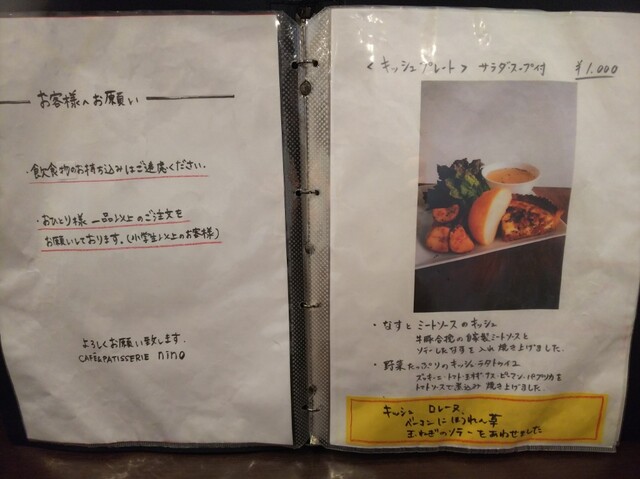 お客様へお願い
・飲食物のお持ち込みはご遠慮ください.
・おひとり様 一品以上のご注文を
お願いしております。(小学生以上のお客様)
よろしくお願い致します.
CAFE&PATISSERIE nino
<キッシュプレート> サラダスープ付 ¥1,000
・なすと ミートソースのキッシュ
牛豚合挽の自家製ミートソースと
ソテーしたなすを入れ焼き上げました.
・野菜たっぷりのキッシュラタトゥイユ
ズッキーニ・トマト・玉ネギ・ナス・ピーマン・パプリカを
トマトソースで煮込み 焼き上げました.
キッシュ ロレーヌ.
ベーコンにほうれん草
玉ねぎのソテーをあわせました